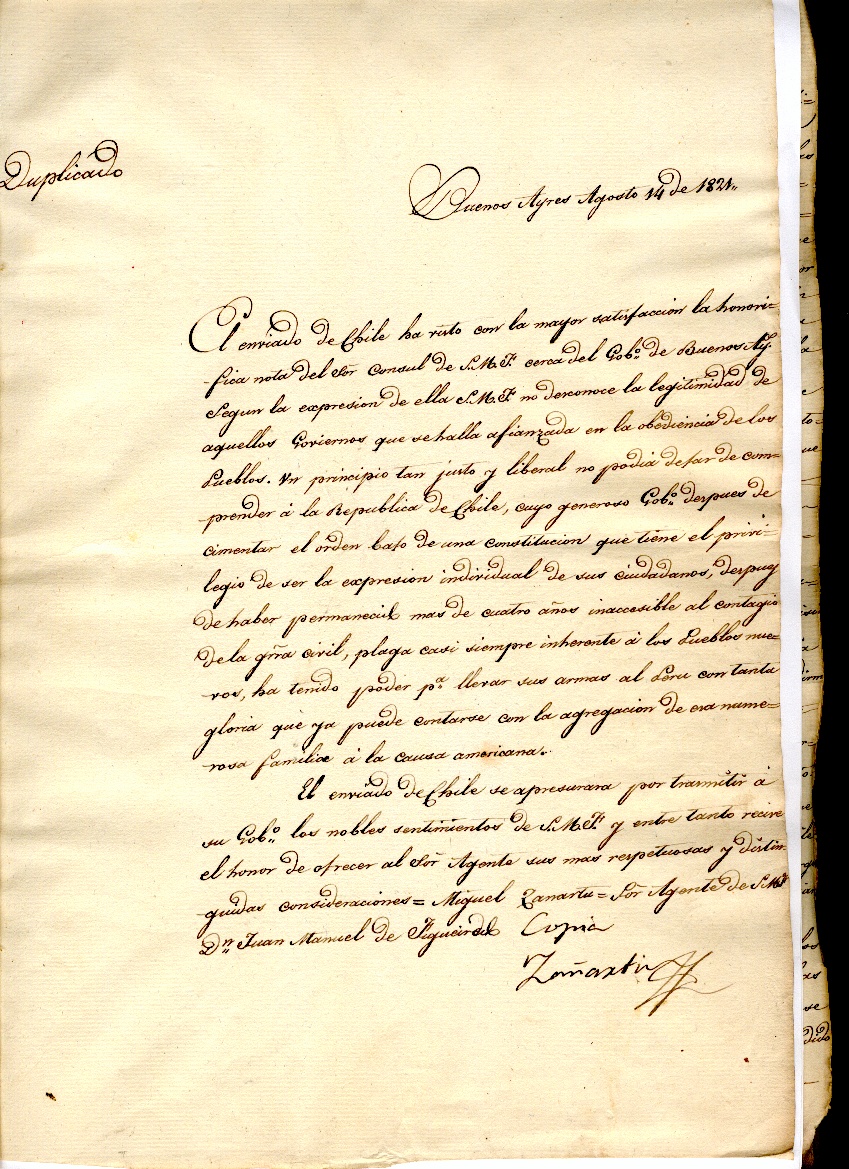 Duplicado
Buenos Ayres Agosto 14 de 1821,,
El enviado de Chile ha visto con la mayor satisfaccion la honori=
-fica nota del Sor Consul de S.M.F. cerca del Gob.º de Buenos Ay.s
Segun la expresion de ella S.M.F. no desconoce la legitimidad de
aquellos Goviernos que se halla afianzada en la obediencia de los
Pueblos. Un principio tan justo y liberal no podia dejar de com=
-prender á la Republica de Chile, cuyo generoso Gob.º despues de
cimentar el orden bajo de una constitucion que tiene el privi=
legio de ser la expresion individual de sus ciudadanos, despues
de haber permanecido mas de cuatro años inaccesible al contagio
de la grra civil, plaga casi siempre inherente á los Pueblos nue=
-vos, ha tenido poder p.ª llevar sus armas al Peru con tanta
gloria que ya puede contarse con la agregacion de esa nume=
-rosa familia á la causa americana.
El enviado de Chile se apresurara por trasmitir á
su Gob.º los nobles sentimientos de S.M.F. y entre tanto recive
el honor de ofrecer al Sor Agente sus mas respetuosas y distin=
-guidas consideraciones = Miguel Zanartu = Sor Agente de S.M.F.
D.n Juan Manuel de Figueiredo Copia
Zañartu